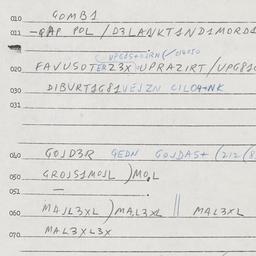 010 GOMB1
011 -QAP POL / D3LANKT1ND1MORD1
020 FAVUSOTE 23X UPRAZIRT / UPG81G
030 DIBURT1G81VEJZN CILO4+NK
031
040 GOJD3R GEDN GOJDAS+ (212(8
050 GROJS1MOJL ) MO,L
051 —
060 MAJL3XL ) MAL3XL || MAL3XL
070 MAL3XL3X